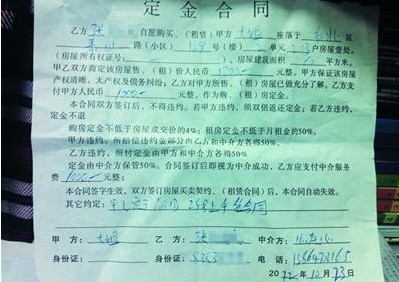 定金合同
乙方 张 自愿购买、(租赁)甲方 大姐 座落于 市北 区
路(小区) 号(楼) 单元 户房屋壹处。
(房屋所有权证号: ),房屋建筑面积 平方米,
甲乙双方商定该房屋售、(租)价人民币 1200 元整。甲方保证该房屋
产权清晰,无产权及债务纠纷;乙方对甲方所售、(租)房屋已做充分了解,乙方支
付甲方人民币 1000 元整,作为购、(租)房定金。
本合同双方签订后,不得违约。若甲方违约,须双倍返还定金;若乙方违约,
定金不退
购房定金不低于房屋成交价的4%;租房定金不低于月租金的50%。
甲方违约,所赔偿违约金部分由乙方和中介方各得50%
乙方违约,所付定金由甲方和中介方各得50%
定金由中介方保管50%。合同签订后即视为中介成功,乙方应支付中介服务
费 1000 元整;
本合同签字生效,双方签订房屋买卖契约,(租赁合同)后,本合同自动失效。
其它约定:
甲 方: 大姐 乙 方: 张 中介方:
身份证: 身份证: 电 话:
2012年10月23日